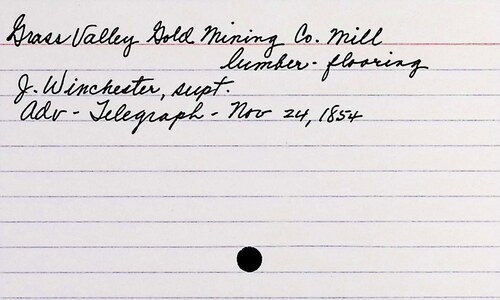 Grass Valley Gold Mining Co. Mill
lumber - flooring
J. Winchester, supt.
Adv - Telegraph - Nov 24, 1854